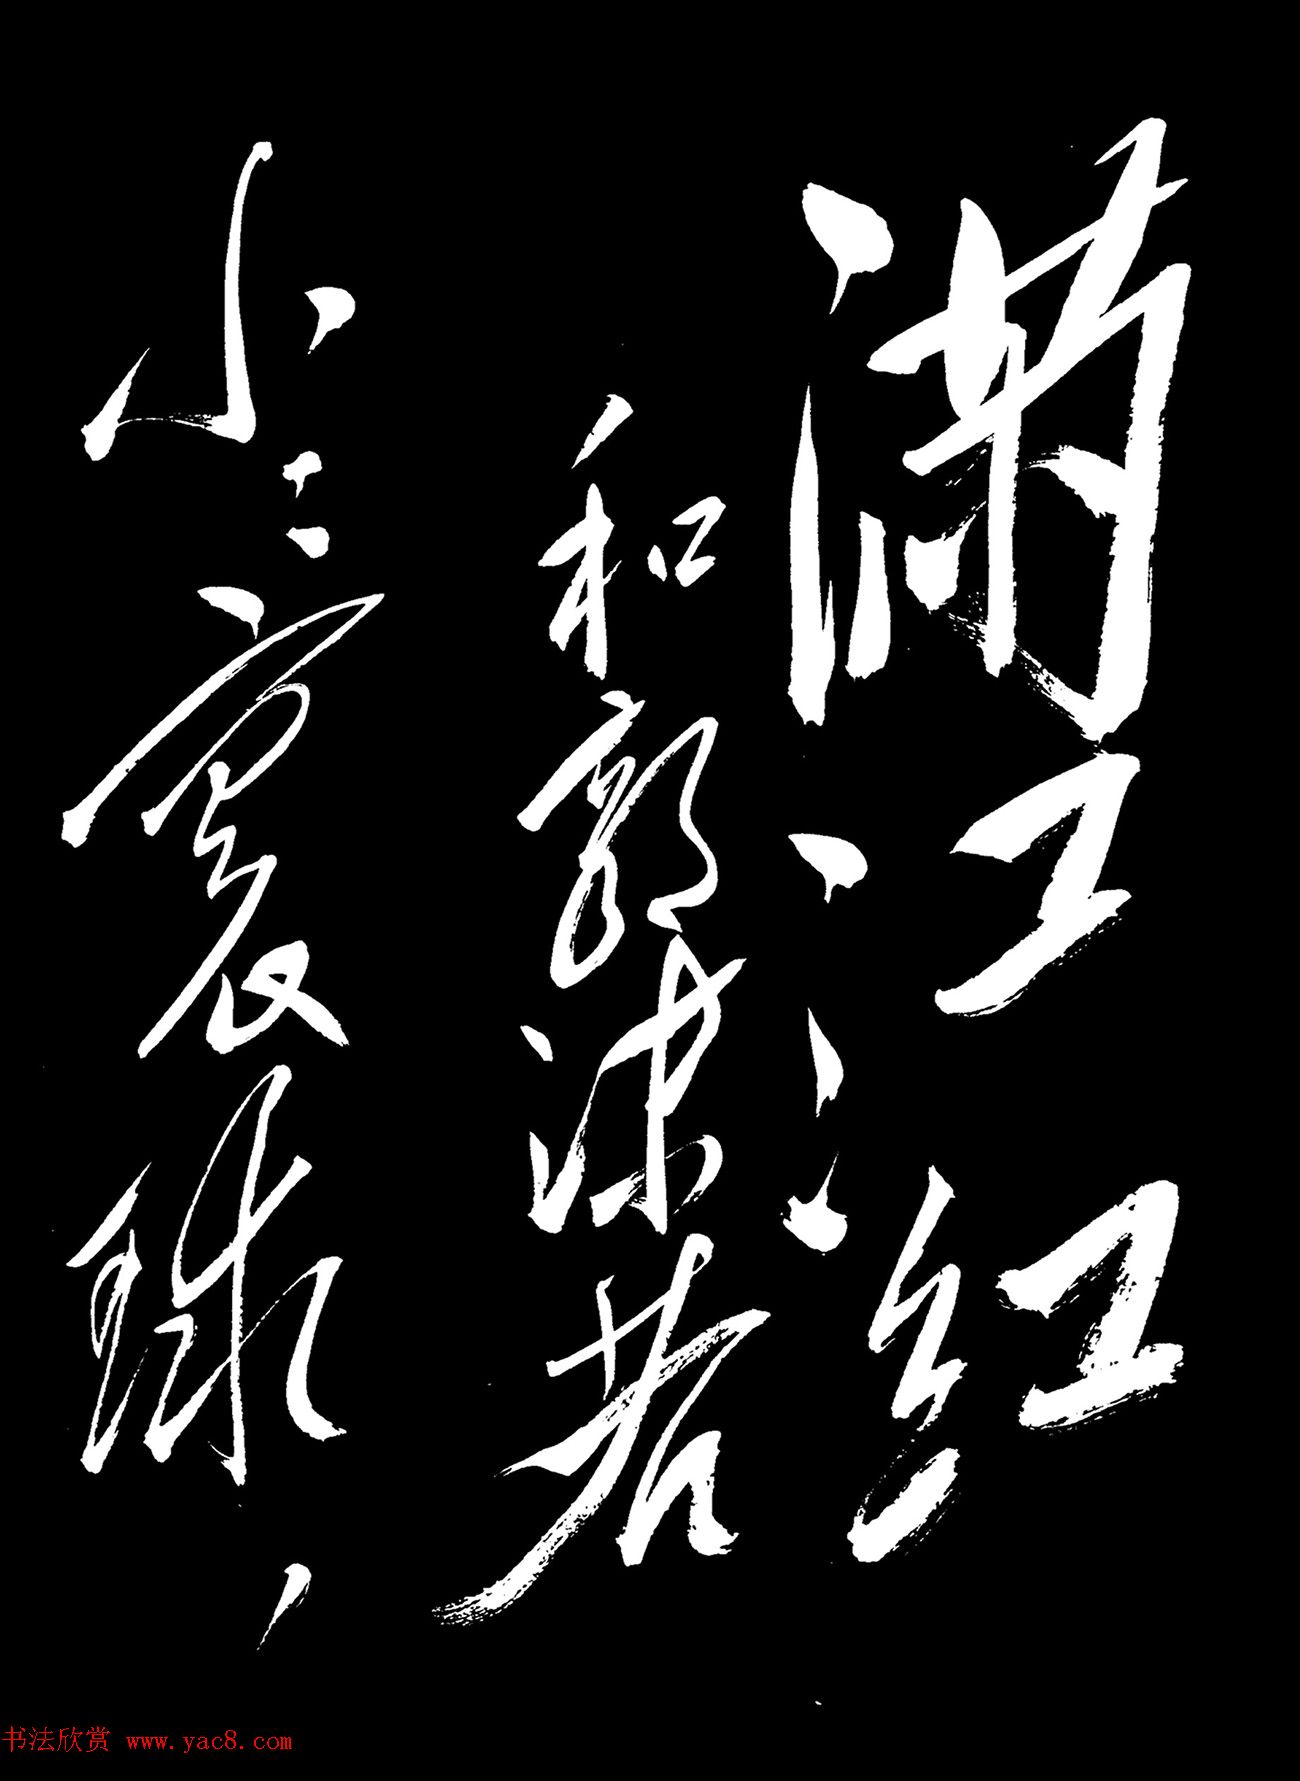 满江红
和郭沫若
小小寰球，
书法欣赏 www.yac8.com